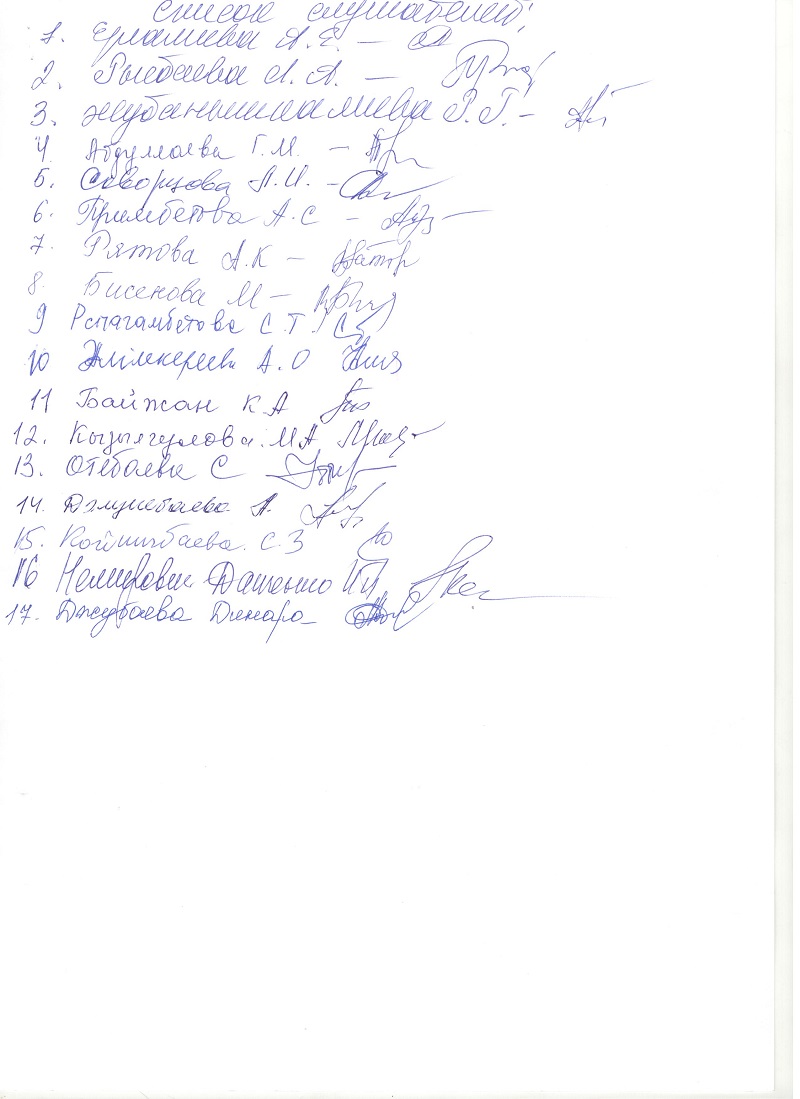 Список слушателей:
1. Ермашева А. Е. –
2. Рысбаева А. А. –
3. Жубанышкалиева Р. Г. –
4 Абдуллаева Г. М. –
5. Скворцова Л. И. –
6. Примбетова А. С –
7. Рятова А. К –
8. Бисенова М –
9 Репагамбетова С. Т.
10 Жилкереева А. О
11 Байжан К А
12. Кызылгулова. М А
13. Отебаева С
14. Далиебаева А.
15. Койшибаева. С. З
16 Немирович Даненко И П
17. Джубаева Динара